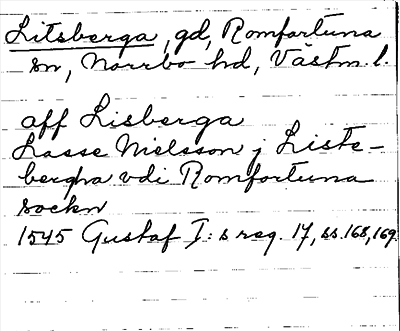 Litsberga, gd, Romfartuna
sn, Norrbo hd, Västm. l.
aff Lisberga
Lasse Nielsson j Liste-
bergha vdi Romfortuna
sockn
1545 Gustaf I:s reg. 17, ss. 168, 169